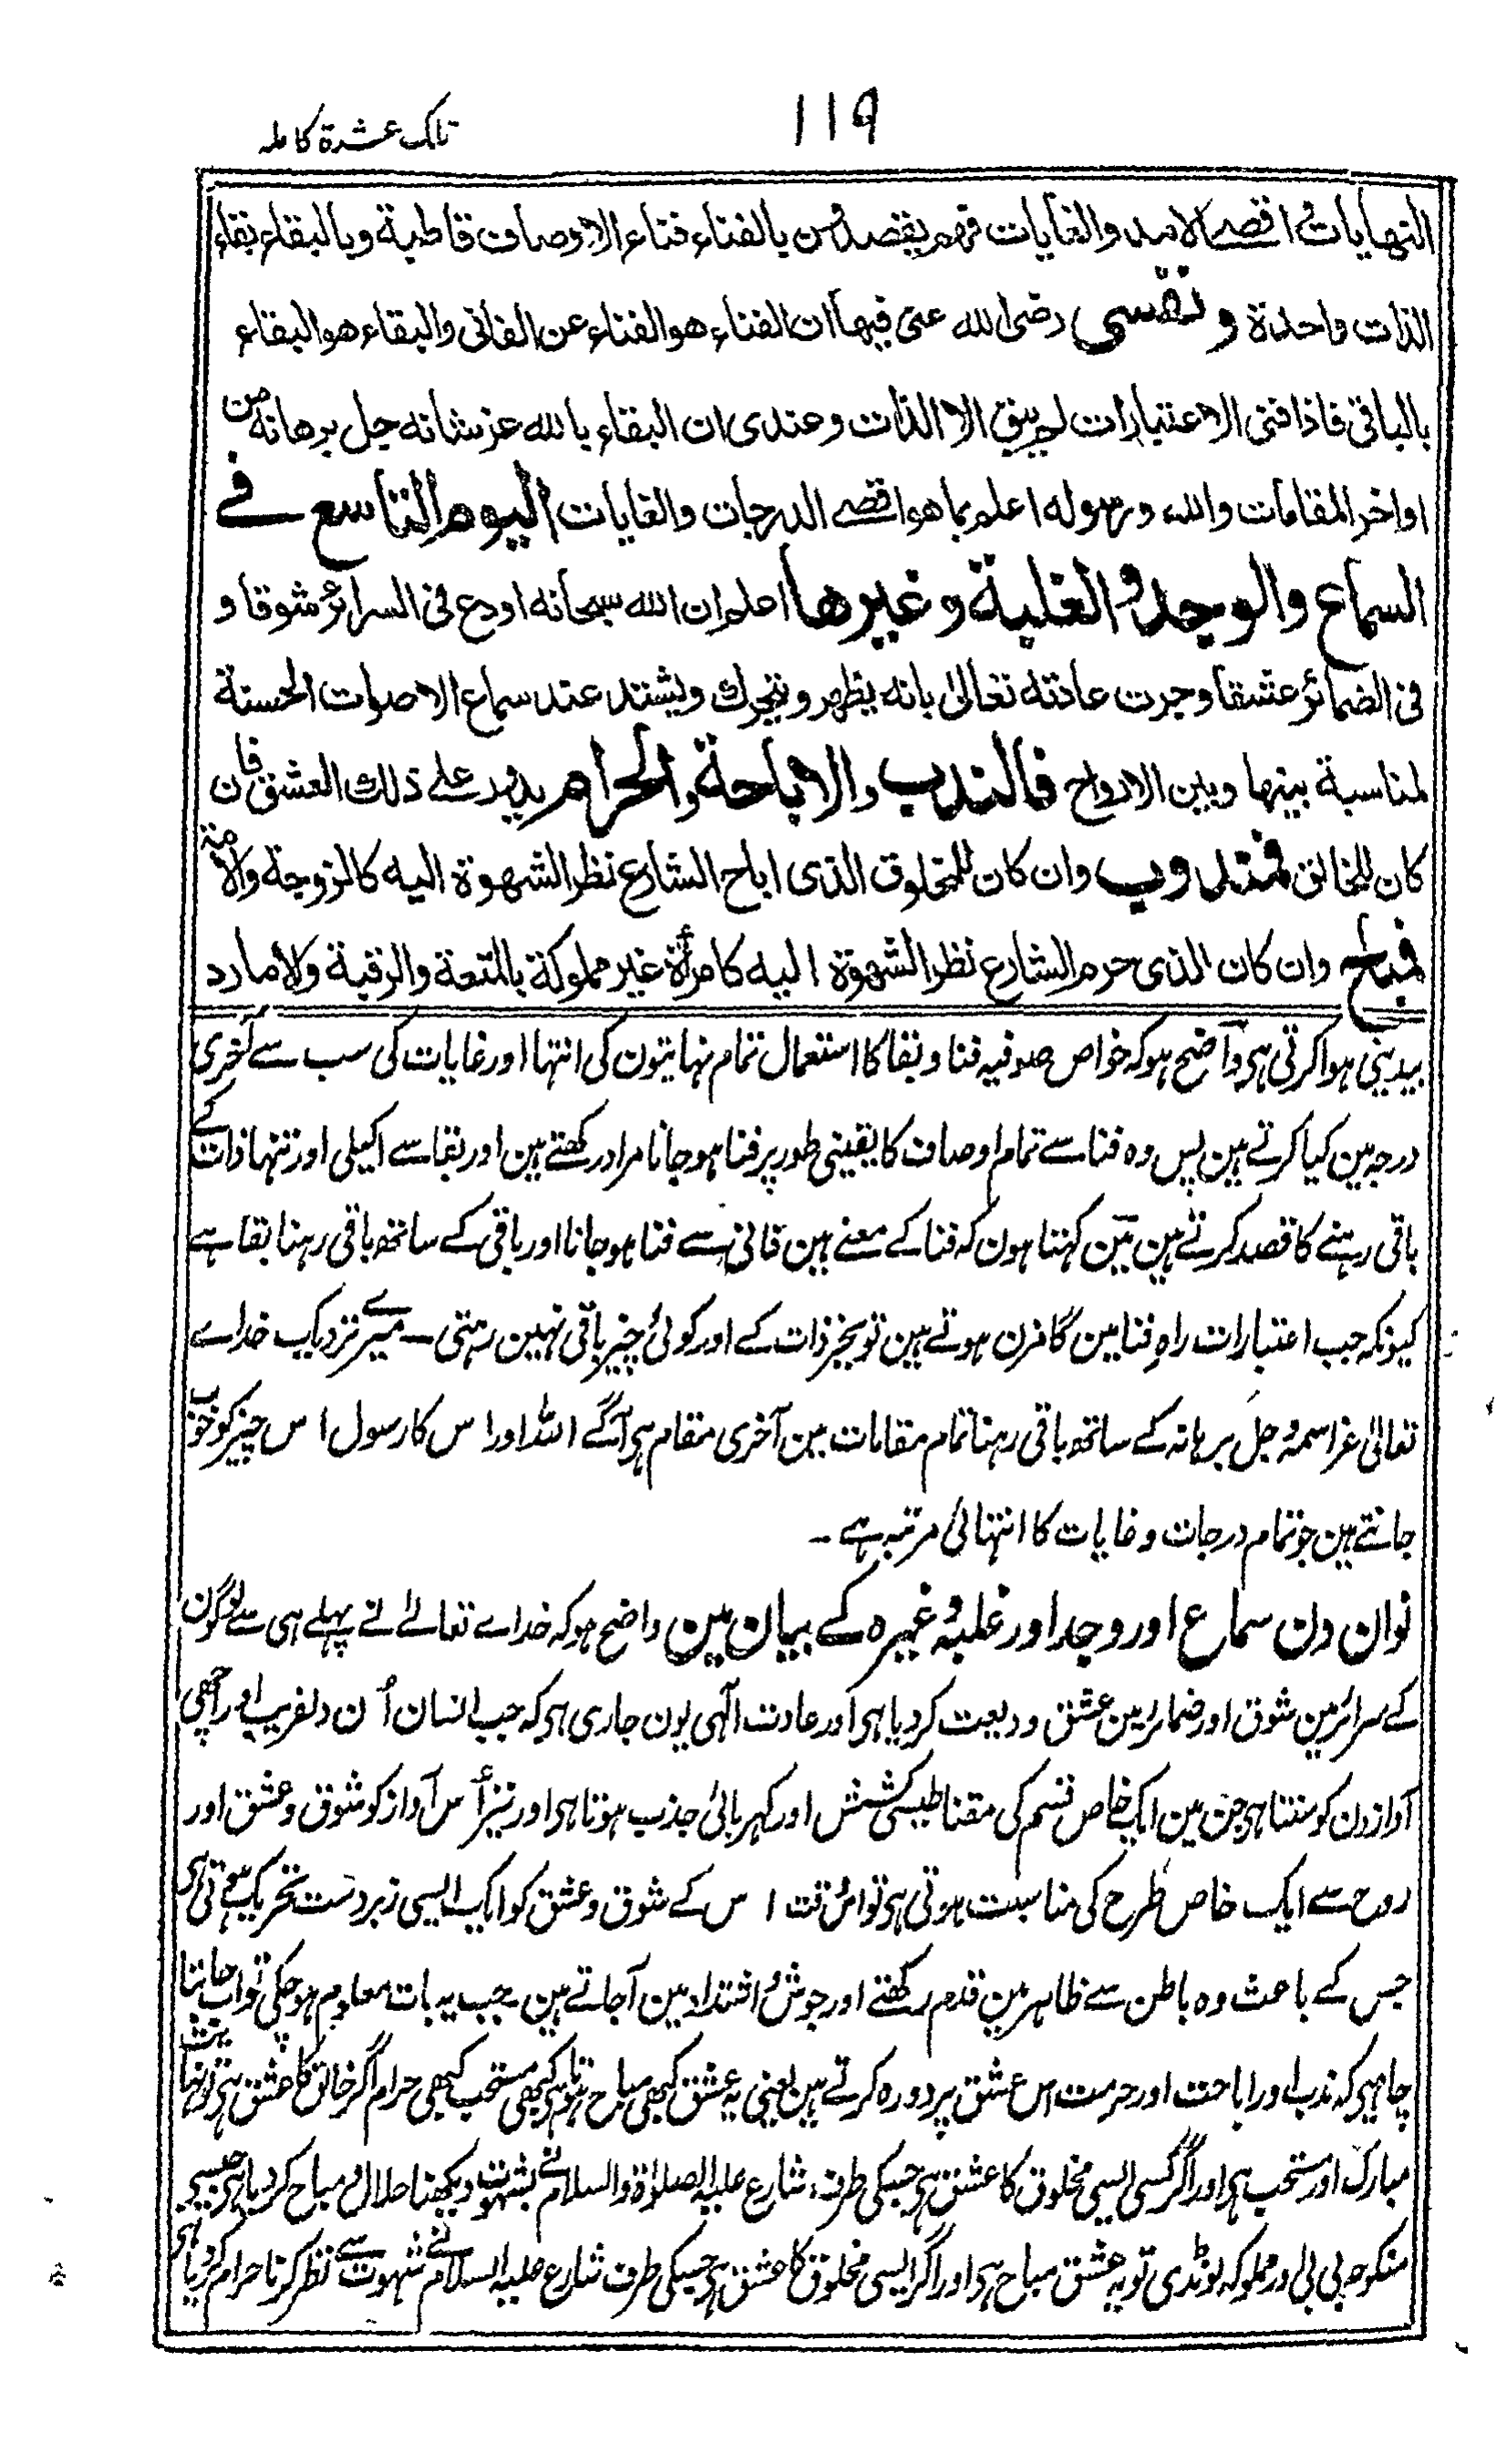 ۱۱۹
تلک عشرة کامله
النهایات اقصے الامد والغایات فهم یقصدون بالفناء فناء الاوصاف قاطبة وبالبقاء بقاء
الذات واحدة و نفسی رضی الله عنی فیها ان الفناء هو الفناء عن الفانی والبقاء هو البقاء
بالباقی فاذا فنی الاعتبارات لم یبق الا الذات وعندی ان البقاء بالله عز شانه جل برهانه من
اواخر المقامات والله ورسوله اعلم بما هو اقصے الدرجات والغایات الیوم التاسع فے
السماع والوجد والغلبة وغیرها اعلم ان الله سبحانه اودع فی السرائر شوقا و
فی الضمائر عشقا وجرت عادته تعالیٰ بانه یظهر ویتحرک ویشتد عند سماع الاصوات الحسنة
لمناسبة بینها وبین الارواح فالندب والاباحة والحرام یدور علے ذلک العشق فان
کان للخالق فمندوب وان کان للمخلوق الذی اباح الشارع نظر الشهوة الیه کالزوجة والامة
فمباح وان کان الذی حرم الشارع نظر الشهوة الیه کامرأة غیر مملوکة بالمتعة والرقبة ولامارد
بیدینی ہوا کرتی ہی واضح ہو کہ خواص صوفیہ فنا و بقا کا استعمال تمام نہایتون کی انتہا اور غایات کی سب سے آخری
درجہ مین کیا کرتے ہین پس وہ فنا سے تمام اوصاف کا یقینی طور پر فنا ہو جانا مراد رکھتے ہین اور بقا سے اکیلی اور تنہا ذات کے
باقی رہنے کا قصد کرتے ہین مین کہتا ہون کہ فنا کے معنے ہین فانی سے فنا ہو جانا اور باقی کے ساتھ باقی رہنا بقا ہے
کیونکہ جب اعتبارات راہِ فنا مین گامزن ہوتے ہین تو بجز ذات کے اور کوئی چیز باقی نہین رہتی ـ میرے نزدیک خداے
تعالیٰ عز اسمہٗ وجل برہانہ کے ساتھ باقی رہنا تمام مقامات مین آخری مقام ہی آگے اللہ اور اس کا رسول اس چیز کو خوب
جانتے ہین جو تمام درجات و غایات کا انتہائی مرتبہ ہے ـ
نوان دن سماع اور وجد اور غلبہ وغیرہ کے بیان مین واضح ہو کہ خداے تعالےٰ نے پہلے ہی سے لوگون
کے سرائر مین شوق اور ضمائر مین عشق ودیعت کر دیا ہی اور عادت الٰہی یون جاری ہی کہ جب انسان اُن دلفریب اور اچھی
آوازون کو سنتا ہی جن مین ایک خاص قسم کی مقناطیسی کشش اور کہربائی جذب ہوتا ہی اور نیز اُس آواز کو شوق و عشق اور
روح سے ایک خاص طرح کی مناسبت ہوتی ہی تو اُس وقت اس کے شوق و عشق کو ایک ایسی زبردست تحریک ہوتی ہی
جس کے باعث وہ باطن سے ظاہر مین قدم رکھتے اور جوش و اشتداد مین آجاتے ہین ـ جب یہ بات معلوم ہو چکی تو اب جاننا
چاہیے کہ ندب اور اباحت اور حرمت اس عشق پر دورہ کرتے ہین یعنی یہ عشق کبھی مباح ہوتا ہی کبھی مستحب کبھی حرام اگر خالق کا عشق ہی تو نہایت
مبارک اور مستحب ہی اور اگر کسی ایسی مخلوق کا عشق ہی جسکی طرف شارع علیہ الصلوٰة والسلام نے بشہوت دیکھنا حلال و مباح کر دیا ہی جیسے
منکوحہ بی بی اور مملوکہ لونڈی تو یہ عشق مباح ہی اور اگر ایسی مخلوق کا عشق ہی جسکی طرف شارع علیہ السلام نے شہوت سے نظر کرنا حرام کر دیا ہی